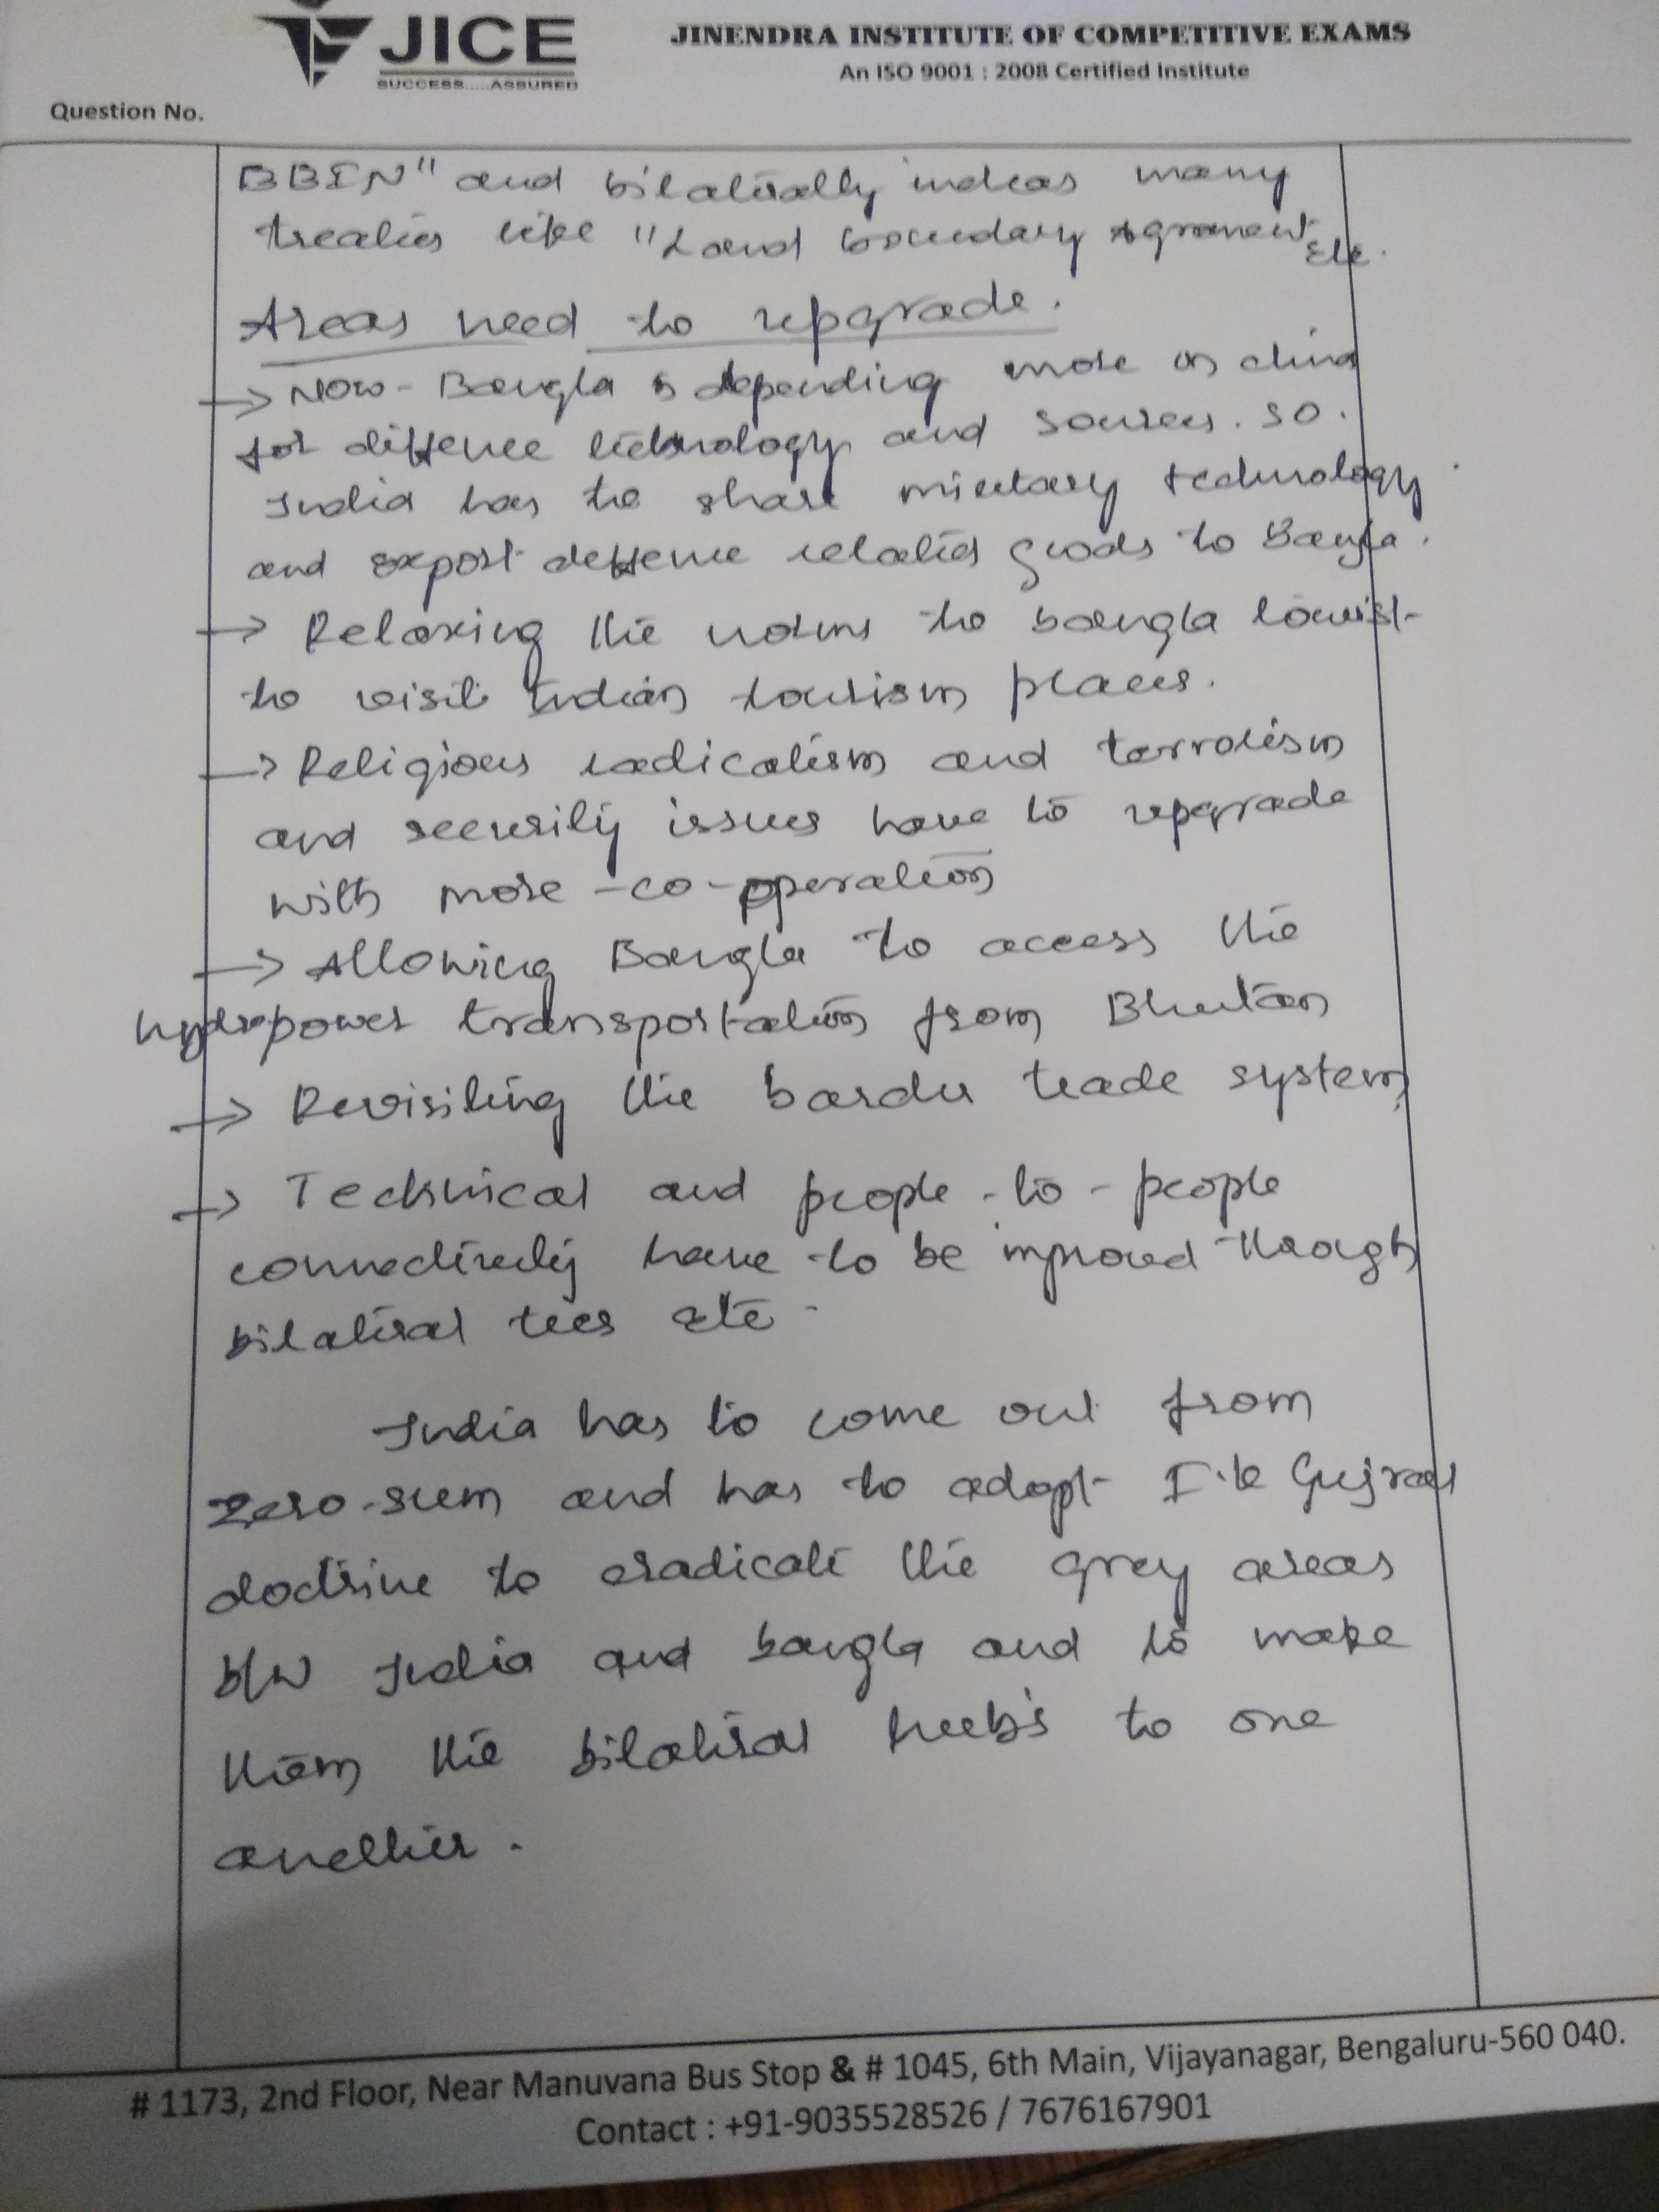 JICE
SUCCESS.....ASSURED
JINENDRA INSTITUTE OF COMPETITIVE EXAMS
An ISO 9001 : 2008 Certified Institute
Question No.
BBIN" and bilaterally indeas many
treaties like "Land boundary Agrement
Etc.
Areas need to upgrade.
→ Now - Bangla is depending more on china
for diffence technology and sources. so.
India has to share military technology
and export deffence related goods to Bangla.
→ Relaxing the norms to bangla tourist
to visit Indian tourism places.
→ Religious radicalism and terrorism
and security issues have to upgrade
with more -co-operation
→ Allowing Bangla to access the
hydropower transportation from Bhutan
→ Revisiting the border trade system
→ Technical and people-to-people
connectively have to be improved through
bilateral ties etc.
India has to come out from
zero-sum and has to adopt I.k Gujral
doctrine to eradicate the grey areas
b/w India and bangla and to make
them the bilateral hub's to one
another.
# 1173, 2nd Floor, Near Manuvana Bus Stop & # 1045, 6th Main, Vijayanagar, Bengaluru-560 040.
Contact : +91-9035528526 / 7676167901